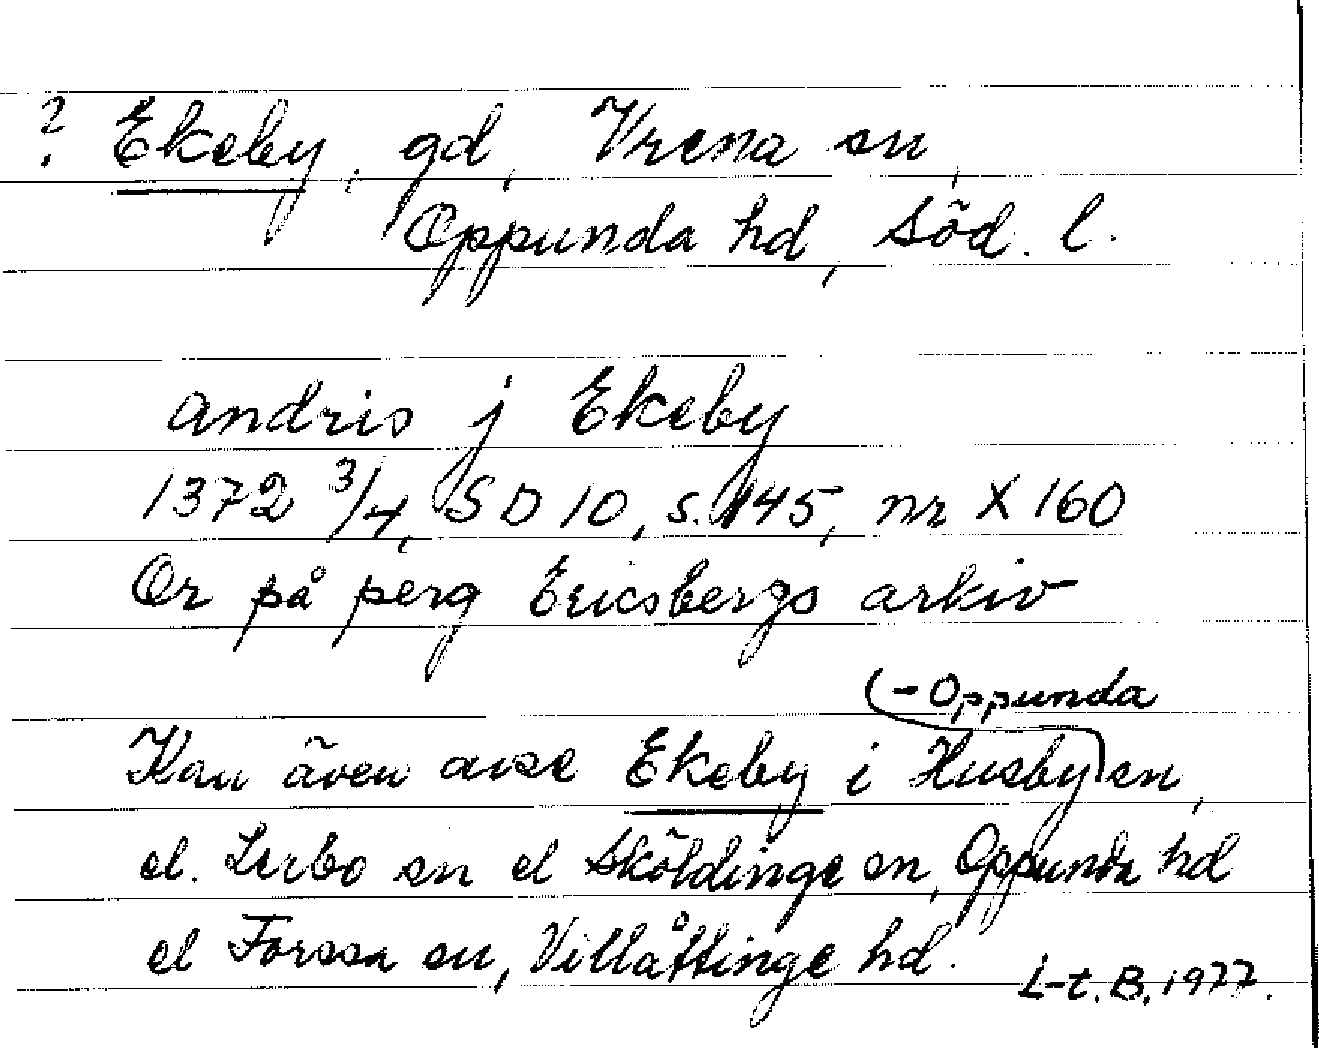 ? Ekeby, gd, Vrena sn,
Oppunda hd, Söd. l.
andris j Ekeby
1372 3/4, SD 10, s. 145, nr X 160
Or på perg Ericsbergs arkiv
(-Oppunda)
Kan även avse Ekeby i Husby sn,
el. Lerbo sn el Sköldinge sn, Oppunda hd
el Forssa sn, Villåttinge hd.
L-t. B. 1977.